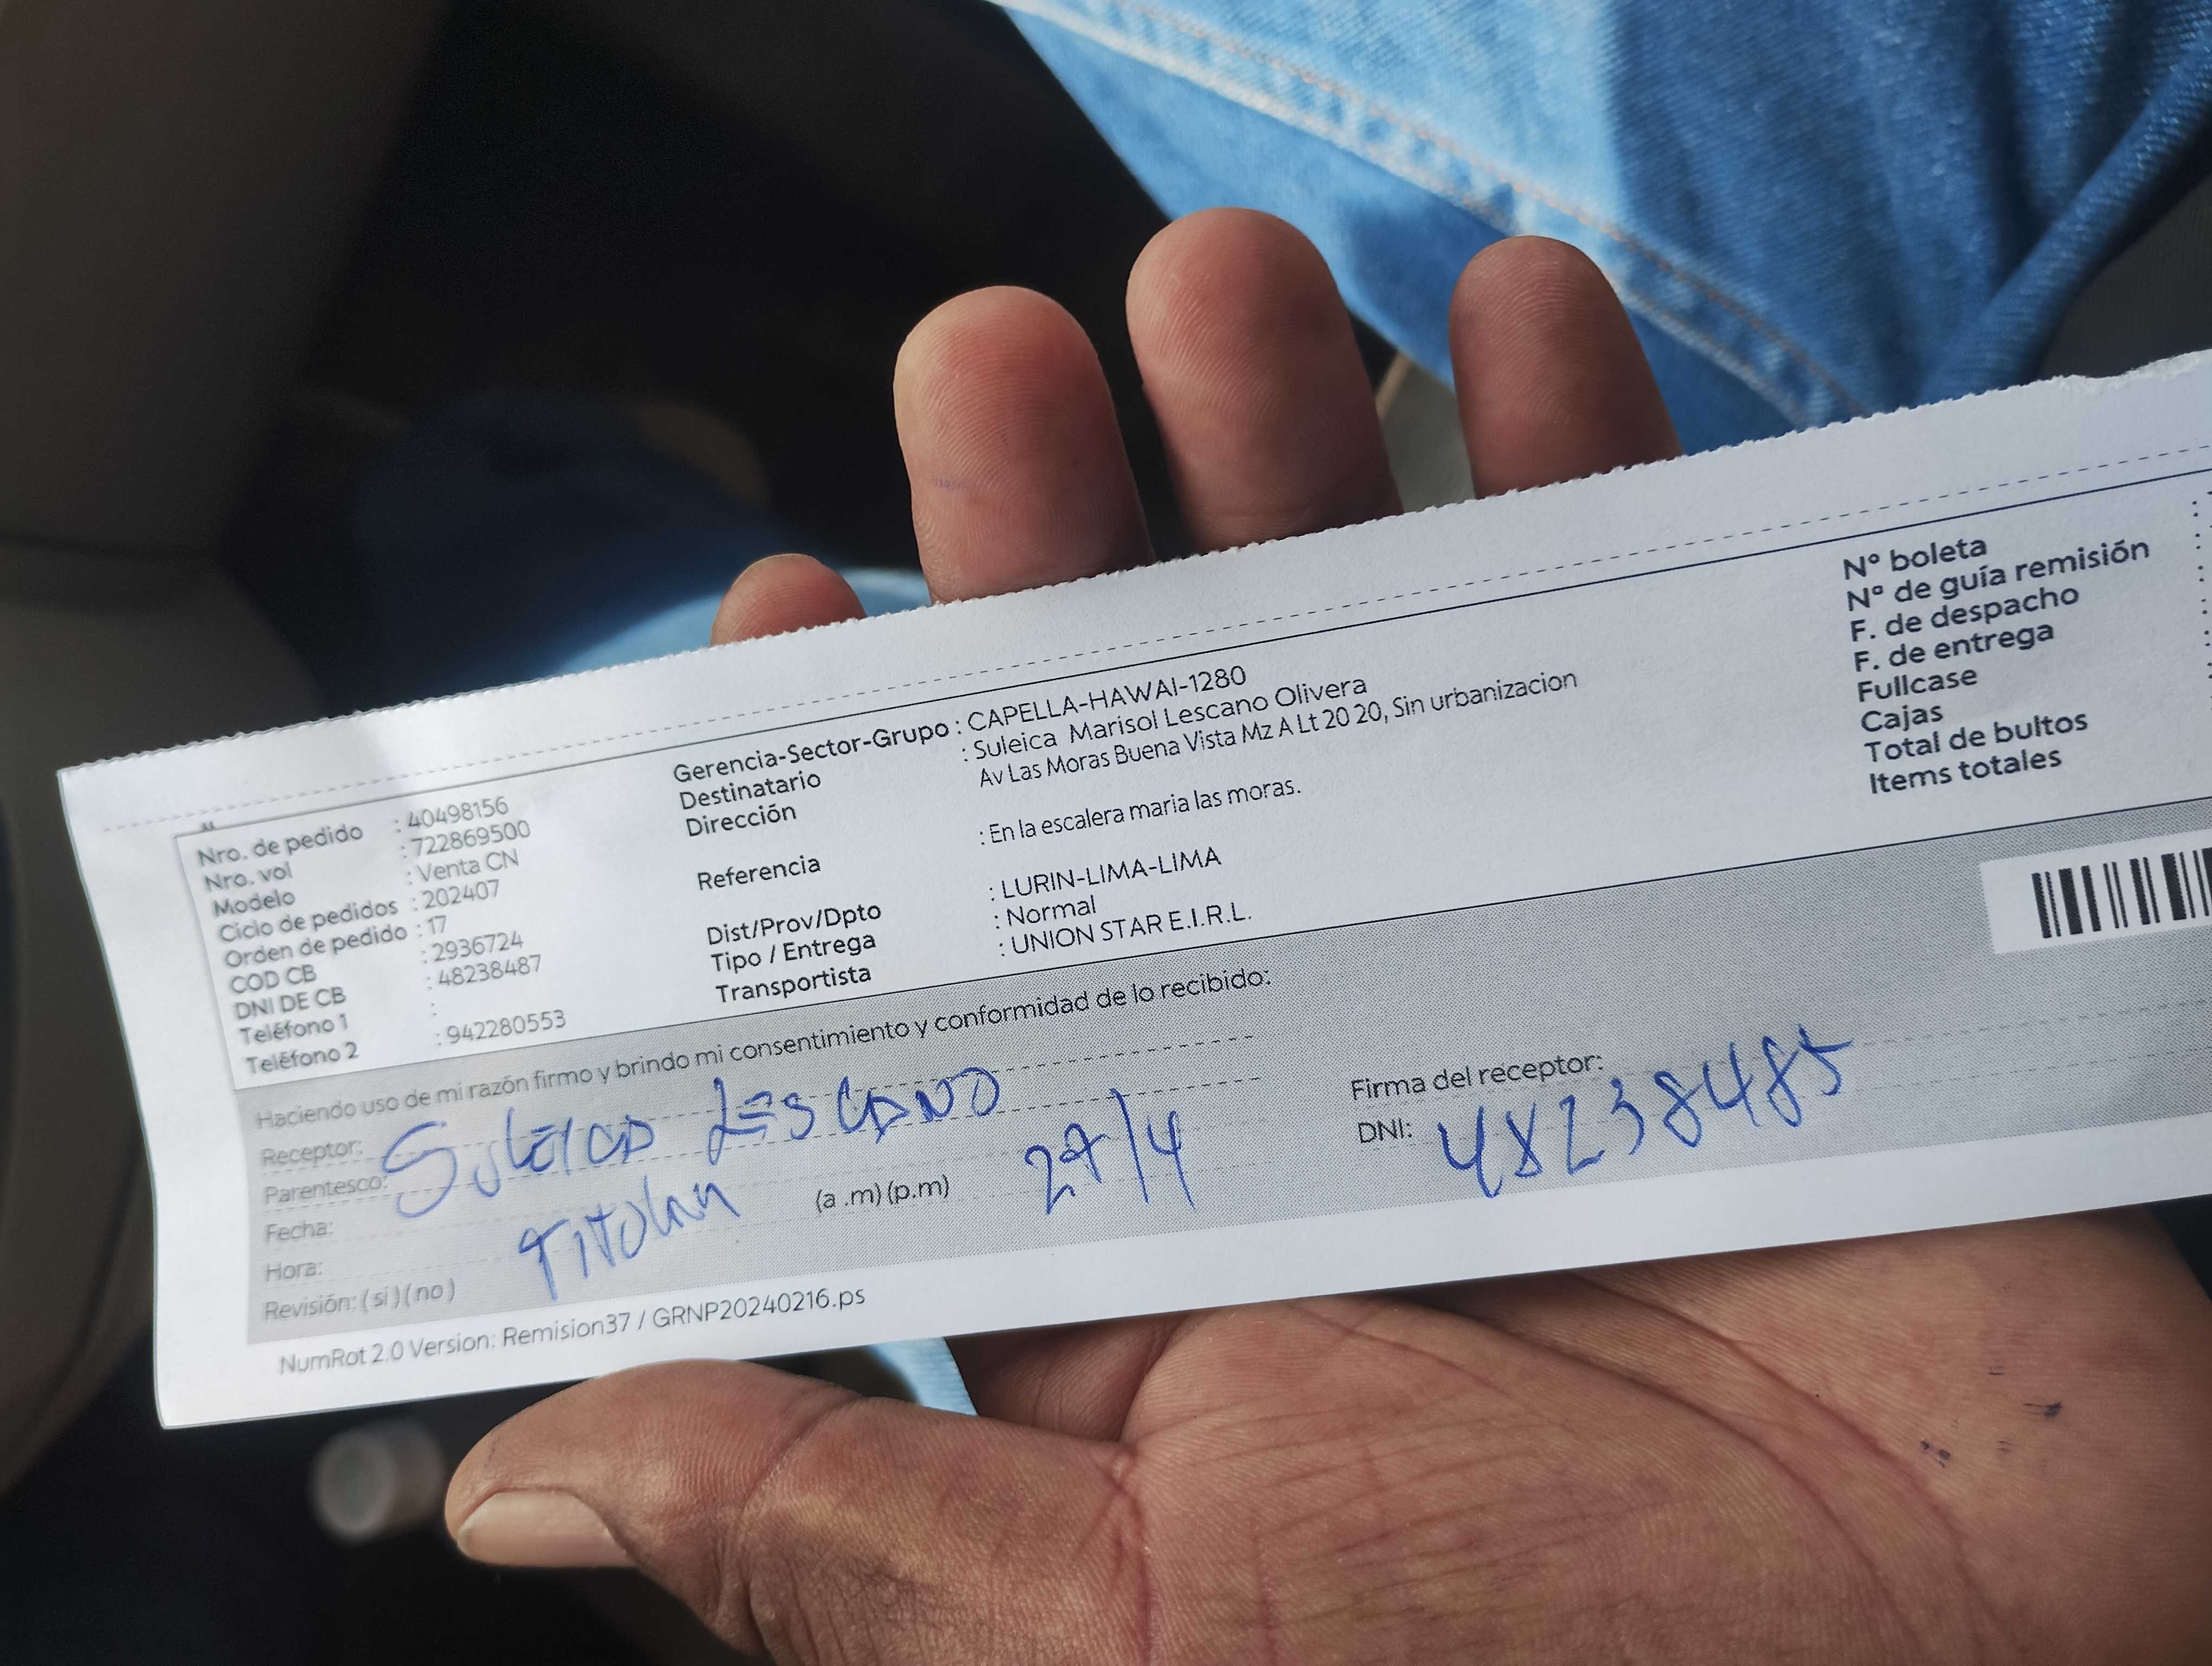 Nro. de pedido : 40498156
Nro. vol : 722869500
Modelo : Venta CN
Ciclo de pedidos : 202407
Orden de pedido : 17
COD CB : 2936724
DNI DE CB : 48238487
Teléfono 1 :
Teléfono 2 : 942280553
Gerencia-Sector-Grupo : CAPELLA-HAWAI-1280
Destinatario : Suleica Marisol Lescano Olivera
Dirección Av Las Moras Buena Vista Mz A Lt 20 20, Sin urbanizacion
Referencia : En la escalera maria las moras.
Dist/Prov/Dpto : LURIN-LIMA-LIMA
Tipo / Entrega : Normal
Transportista : UNION STAR E.I.R.L.
N° boleta :
N° de guía remisión :
F. de despacho :
F. de entrega :
Fullcase :
Cajas :
Total de bultos
Items totales
Haciendo uso de mi razón firmo y brindo mi consentimiento y conformidad de lo recibido:
Receptor: SuLEICA LESCANO
Parentesco:
Fecha: TITOLAR (a .m) (p.m) 27/4
Hora:
Revisión: ( si ) ( no )
Firma del receptor:
DNI: 48238485
NumRot 2.0 Version: Remision37 / GRNP20240216.ps